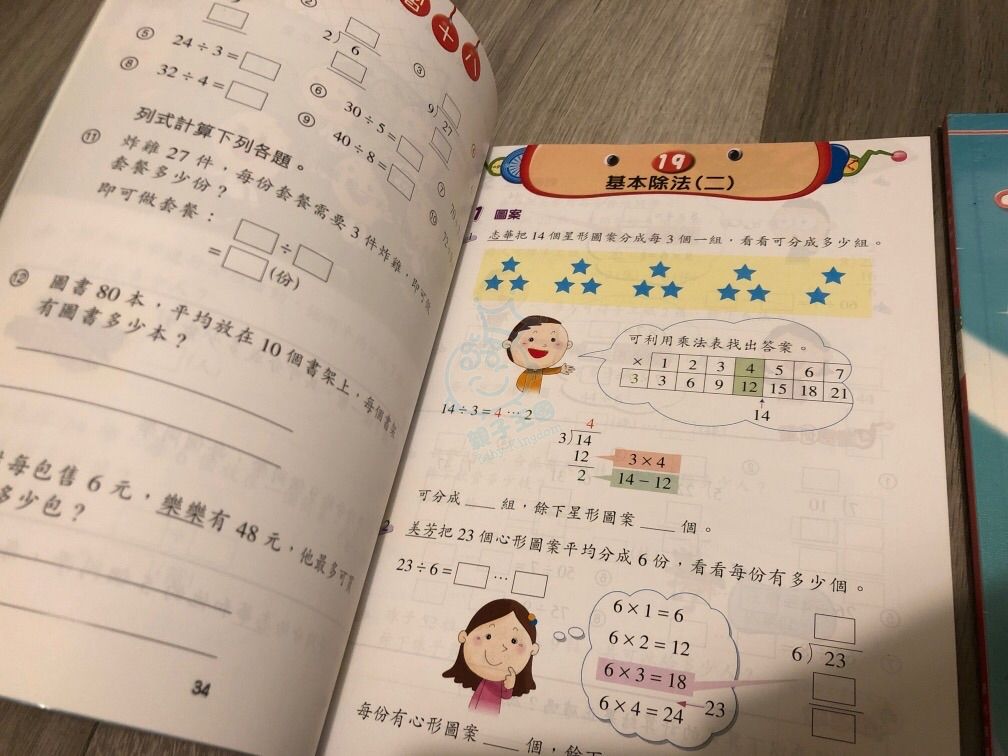 ②
2) 6
⑤ 24 ÷ 3 =
③
9) 27
⑧ 32 ÷ 4 =
⑥ 30 ÷ 5 =
⑨ 40 ÷ 8 =
列式計算下列各題。
⑪ 炸雞 27 件，每份套餐需要 3 件炸雞，即可做
套餐多少份？
即可做套餐：
÷
= (份)
⑫ 圖書 80 本，平均放在 10 個書架上，每個書架
有圖書多少本？
每包售 6 元，樂樂有 48 元，他最多可買
多少包？
34
19
基本除法(二)
1 圖案
1 志華把 14 個星形圖案分成每 3 個一組，看看可分成多少組。
可利用乘法表找出答案。
× 1 2 3 4 5 6 7
3 3 6 9 12 15 18 21
↑
14
14 ÷ 3 = 4 ⋯ 2
4
3) 14
12 3 × 4
2 14 − 12
可分成 ___ 組，餘下星形圖案 ___ 個。
2 美芳把 23 個心形圖案平均分成 6 份，看看每份有多少個。
23 ÷ 6 = ⋯
6 × 1 = 6
6 × 2 = 12
6 × 3 = 18
6 × 4 = 24 23
6) 23
每份有心形圖案 ___ 個，餘下
親子王國
Baby-Kingdom